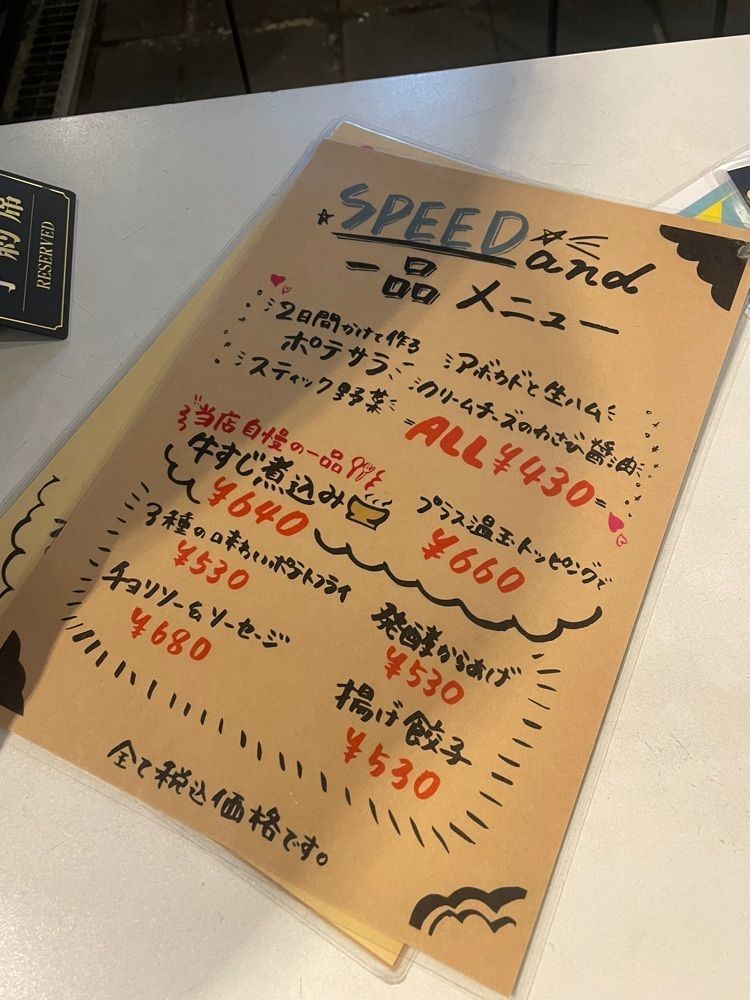 SPEED and
一品 メニュー
2日間かけて作る
ポテサラ
スティック野菜
アボカドと生ハム
クリームチーズのわさび醤油
=ALL ¥430=
当店自慢の一品
牛すじ煮込み
¥640
プラス温玉トッピングで
¥660
3種の味わいポテトフライ
¥530
チョリソー&ソーセージ
¥680
発酵からあげ
¥530
揚げ餃子
¥530
全て税込価格です。
約席
RESERVED